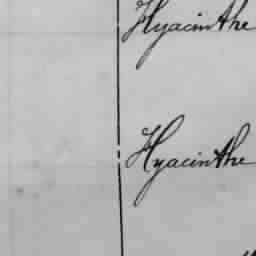 Hyacinthe
Hyacinthe